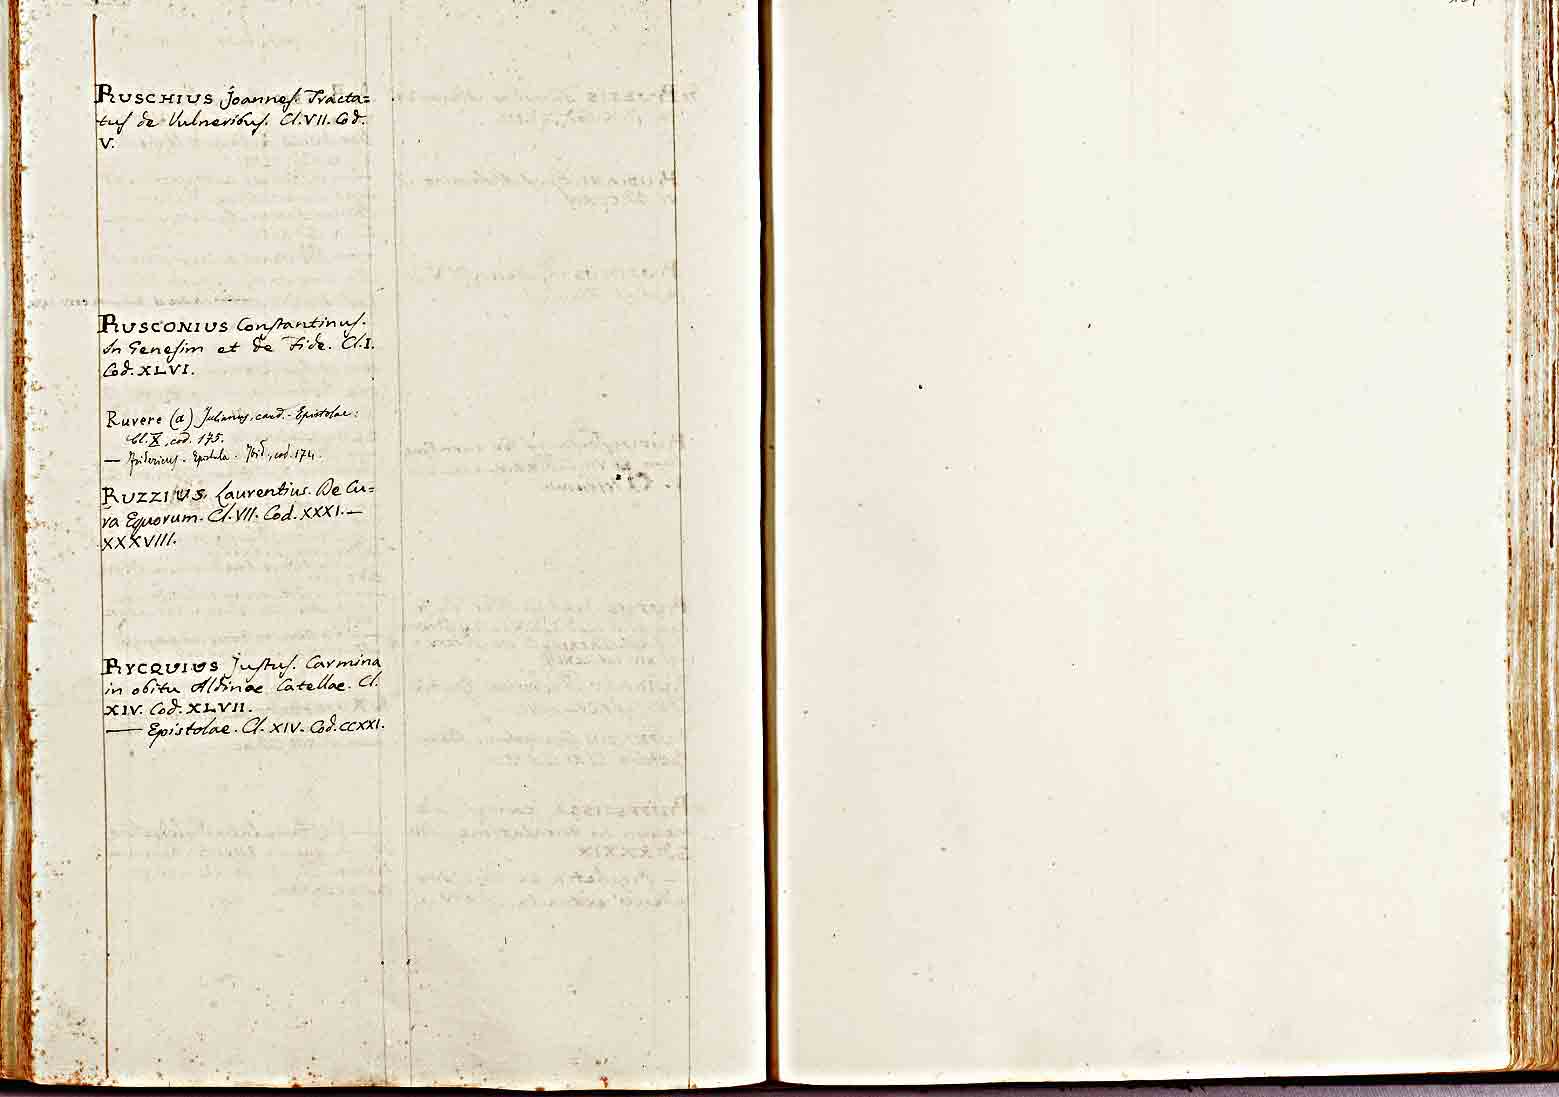 RUSCHIUS Joannes. Tracta=
tus de Vulneribus. Cl. VII. Cod.
V.
RUSCONIUS Constantinus.
In Genesim et de Fide. Cl. I.
Cod. XLVI.
Ruvere (a) Julianus, card. - Epistolae:
Cl. X, cod. 175.
— Epistola. Ibid., cod. 174.
RUZZIUS. Laurentius. De Cu=
ra Equorum. Cl. VII. Cod. XXXI. —
XXXVIII.
RYCQUIUS Justus. Carmina
in obitu Aldinae Catellae. Cl.
XIV. Cod. XLVII.
— Epistolae. Cl. XIV. Cod. CCXXI.